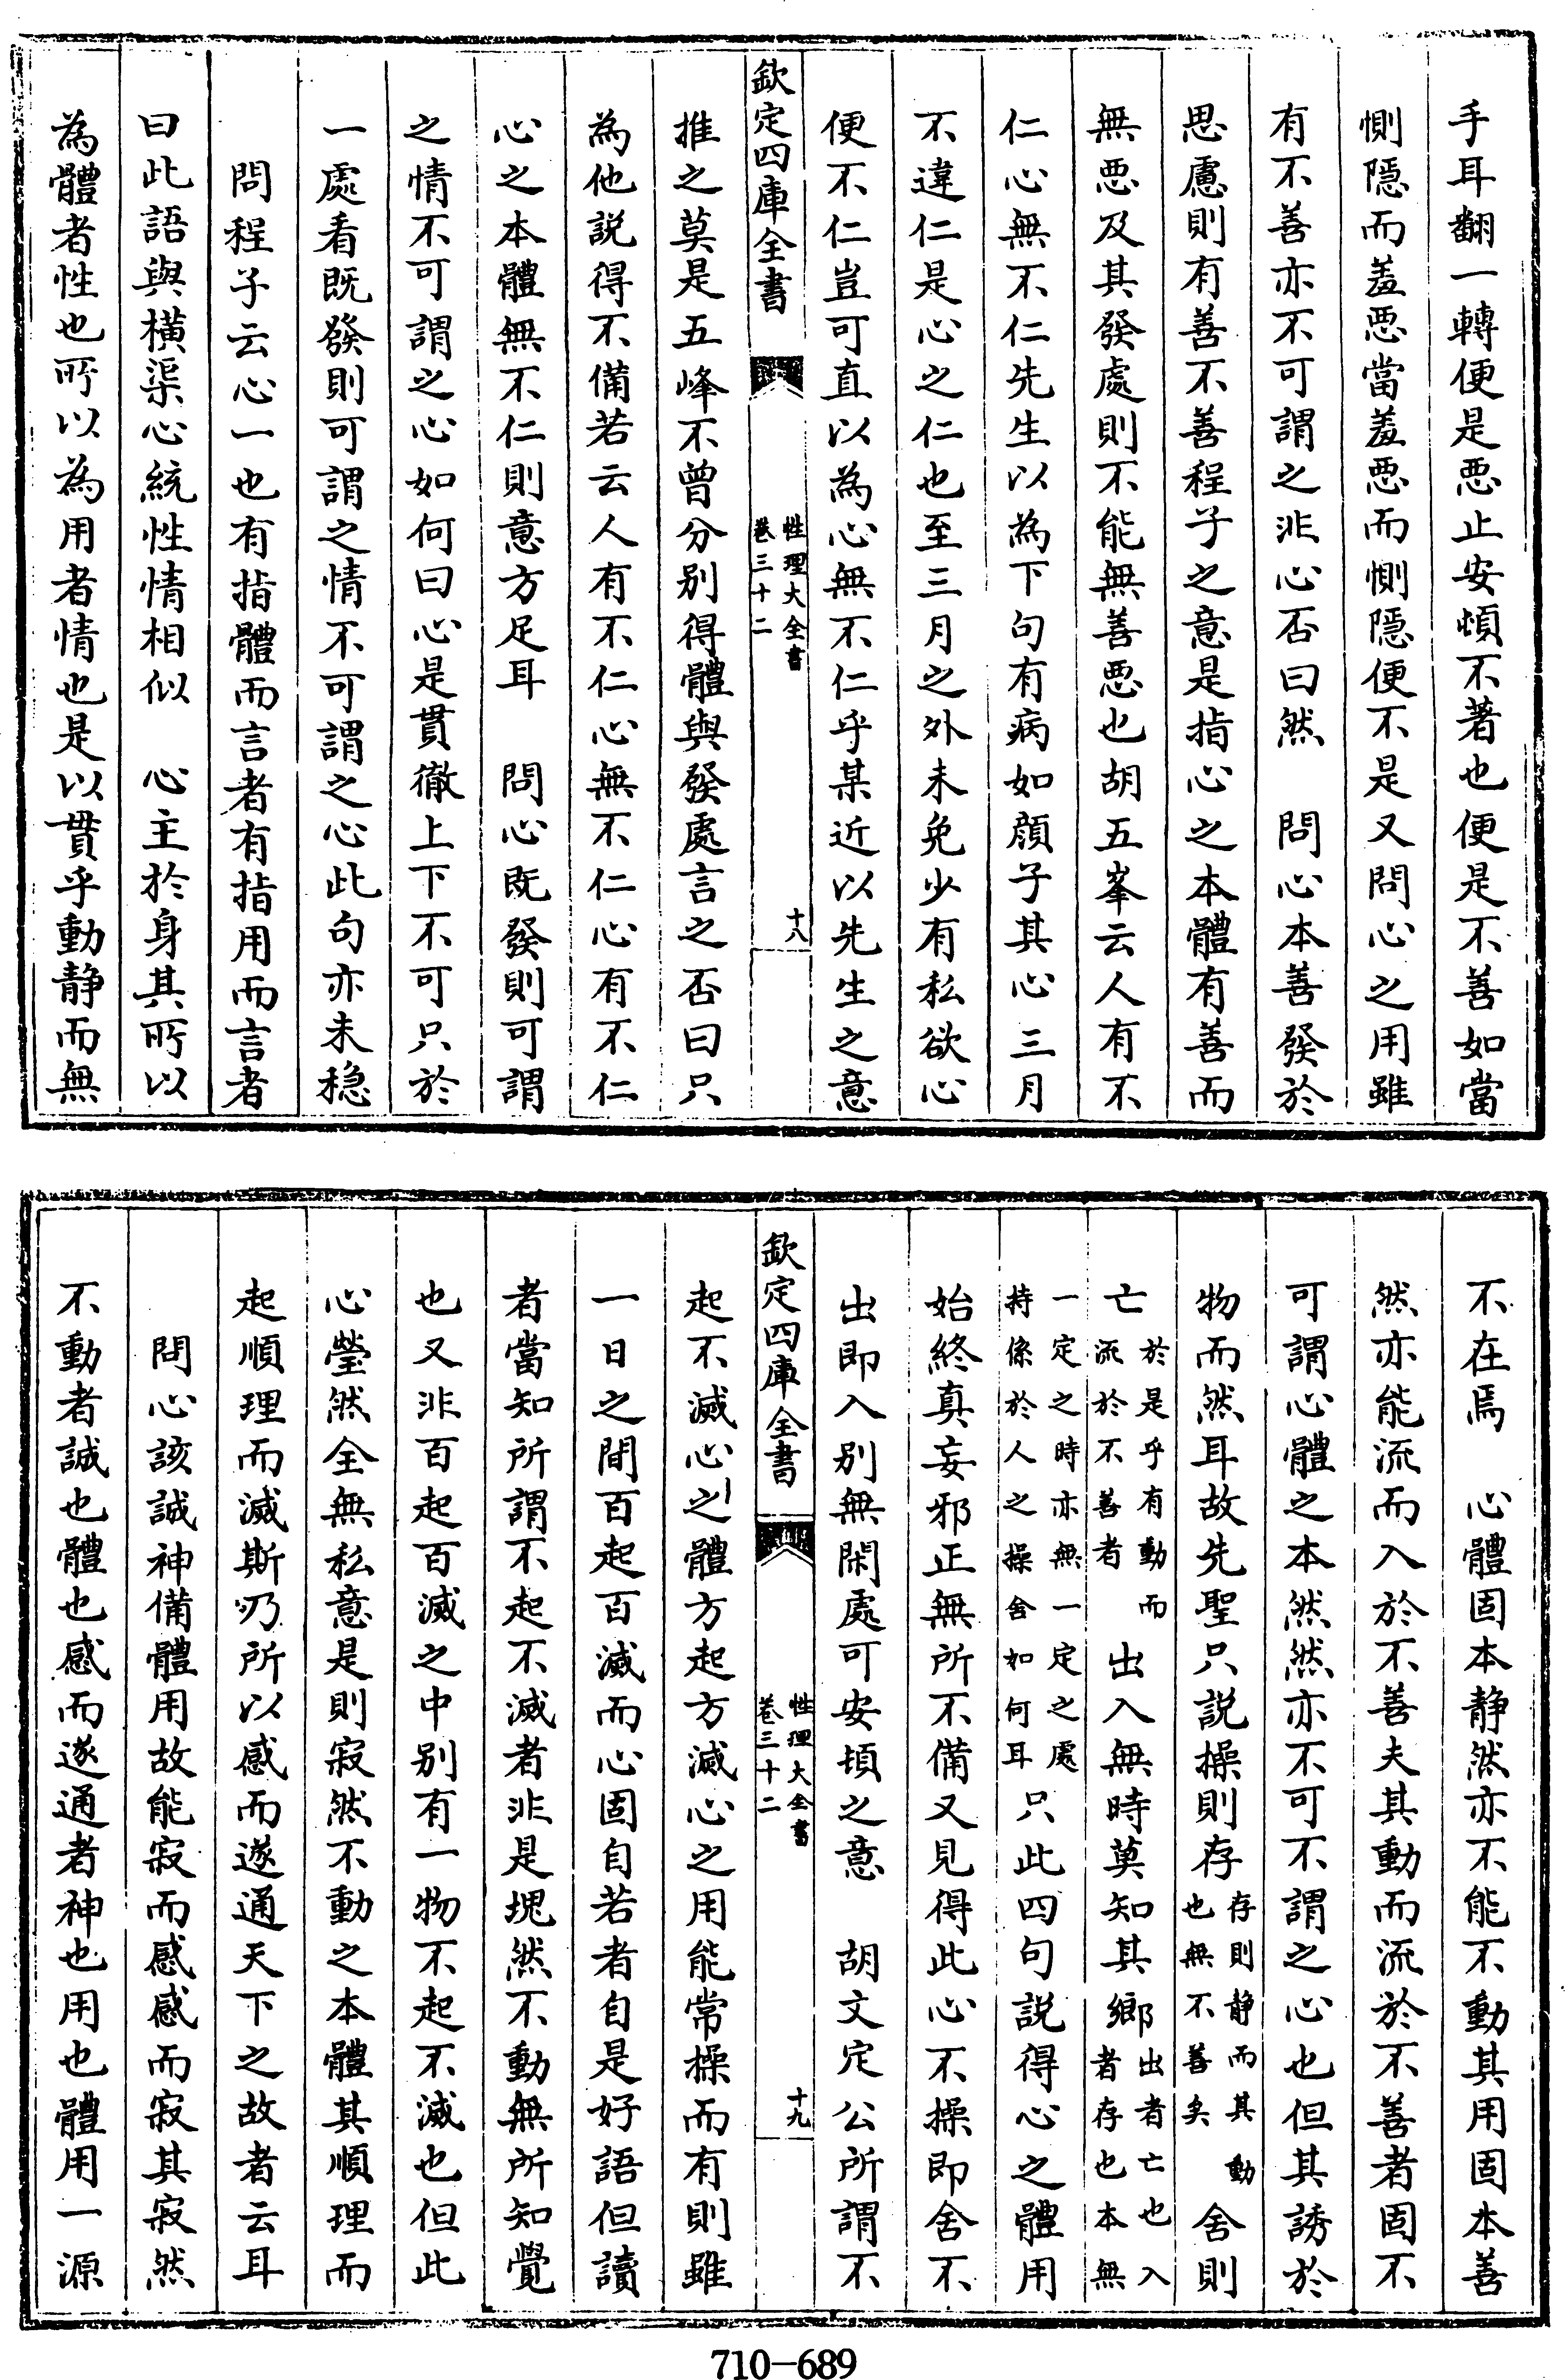 手耳翻一轉便是惡止安頓不著也便是不善如當
惻隱而羞惡當羞惡而惻隱便不是又問心之用雖
有不善亦不可謂之非心否曰然　問心本善發於
思慮則有善不善程子之意是指心之本體有善而
無惡及其發處則不能無善惡也胡五峯云人有不
仁心無不仁先生以為下句有病如顔子其心三月
不違仁是心之仁也至三月之外未免少有私欲心
便不仁豈可直以為心無不仁乎某近以先生之意
欽定四庫全書
性理大全書
卷三十二
十八
推之莫是五峰不曾分别得體與發處言之否曰只
為他説得不備若云人有不仁心無不仁心有不仁
心之本體無不仁則意方足耳　問心既發則可謂
之情不可謂之心如何曰心是貫徹上下不可只於
一處看既發則可謂之情不可謂之心此句亦未穏
問程子云心一也有指體而言者有指用而言者
曰此語與橫渠心統性情相似　心主於身其所以
為體者性也所以為用者情也是以貫乎動静而無
不在焉　心體固本静然亦不能不動其用固本善
然亦能流而入於不善夫其動而流於不善者固不
可謂心體之本然然亦不可不謂之心也但其誘於
物而然耳故先聖只説操則存存則静而其動也無不善矣舍則
亡於是乎有動而流於不善者出入無時莫知其鄉出者亡也入者存也本無
一定之時亦無一定之處持係於人之操舍如何耳只此四句説得心之體用
始終真妄邪正無所不備又見得此心不操即舍不
出即入别無閑處可安頓之意　胡文定公所謂不
欽定四庫全書
性理大全書
卷三十二
十九
起不滅心之體方起方滅心之用能常操而有則雖
一日之間百起百滅而心固自若者自是好語但讀
者當知所謂不起不滅者非是塊然不動無所知覺
也又非百起百滅之中别有一物不起不滅也但此
心瑩然全無私意是則寂然不動之本體其順理而
起順理而滅斯乃所以感而遂通天下之故者云耳
問心該誠神備體用故能寂而感感而寂其寂然
不動者誠也體也感而遂通者神也用也體用一源
710-689